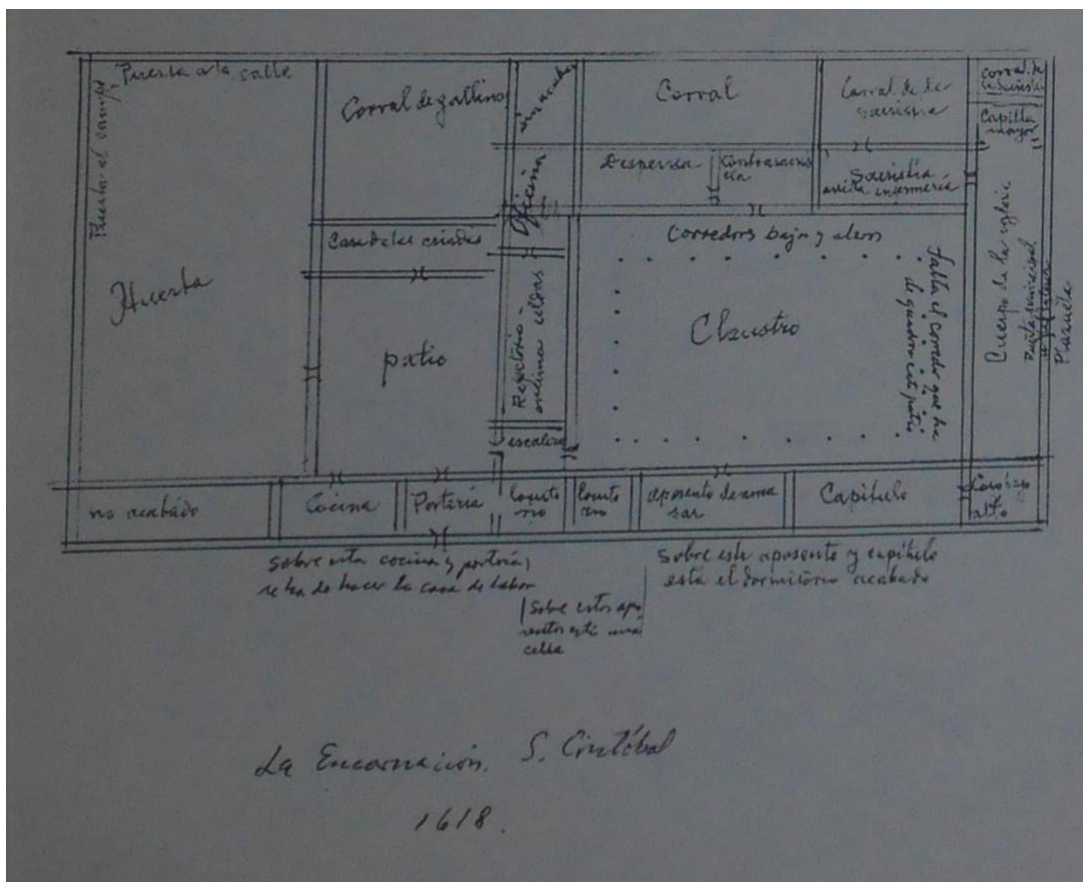 Puerta a la calle
Puerta al campo
Huerta
Corral de gallinas
sin acabar
Corral
Corral de la
sacristía
Corral de
Capilla
mayor
Oficina
Despensa
Contrasacris
tía
Sacristía
arriba enfermería
Casa de las criadas
Corredores bajos y altos
patio
Refectorio -
encima celdas
escalera
Claustro
Falta el corredor que ha
de guardar este patio
Cuerpo de la iglesia
Puerta principal
Plazuela
no acabado
Cocina
Portería
locuto
rio
locuto
rio
aposento de ama
sar
Capítulo
Coro bajo
y
alto
Sobre esta cocina y portería,
se ha de hacer la casa de labor
Sobre estos apo
sentos está una
celda
Sobre este aposento y capítulo
está el dormitorio acabado
La Encarnación. S. Cristóbal
1618.